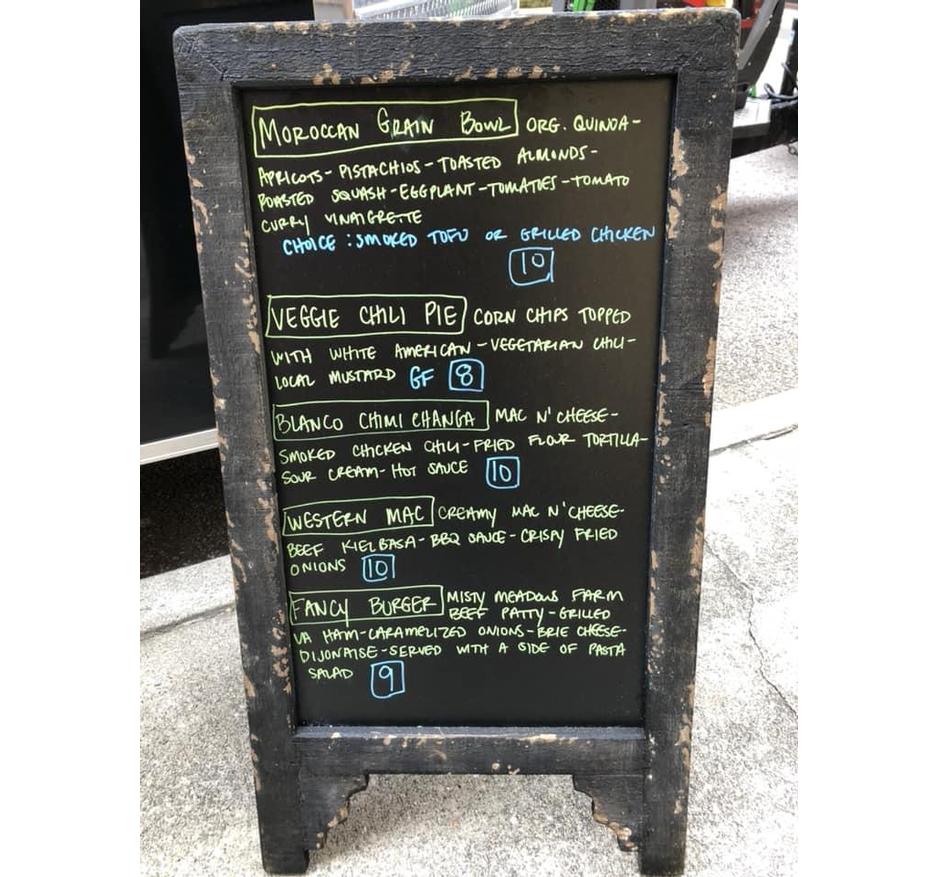 MOROCCAN GRAIN BOWL ORG. QUINOA-
APRICOTS-PISTACHIOS-TOASTED ALMONDS-
ROASTED SQUASH-EGGPLANT-TOMATOES-TOMATO
CURRY VINAIGRETTE
CHOICE: SMOKED TOFU OR GRILLED CHICKEN
10
VEGGIE CHILI PIE CORN CHIPS TOPPED
WITH WHITE AMERICAN-VEGETARIAN CHILI-
LOCAL MUSTARD GF 8
BLANCO CHIMI CHANGA MAC N'CHEESE-
SMOKED CHICKEN CHILI-FRIED FLOUR TORTILLA-
SOUR CREAM-HOT SAUCE 10
WESTERN MAC CREAMY MAC N'CHEESE-
BEEF KIELBASA-BBQ SAUCE-CRISPY FRIED
ONIONS 10
FANCY BURGER MISTY MEADOWS FARM
BEEF PATTY-GRILLED
VA HAM-CARAMELIZED ONIONS-BRIE CHEESE-
DIJONAISE-SERVED WITH A SIDE OF PASTA
SALAD 9